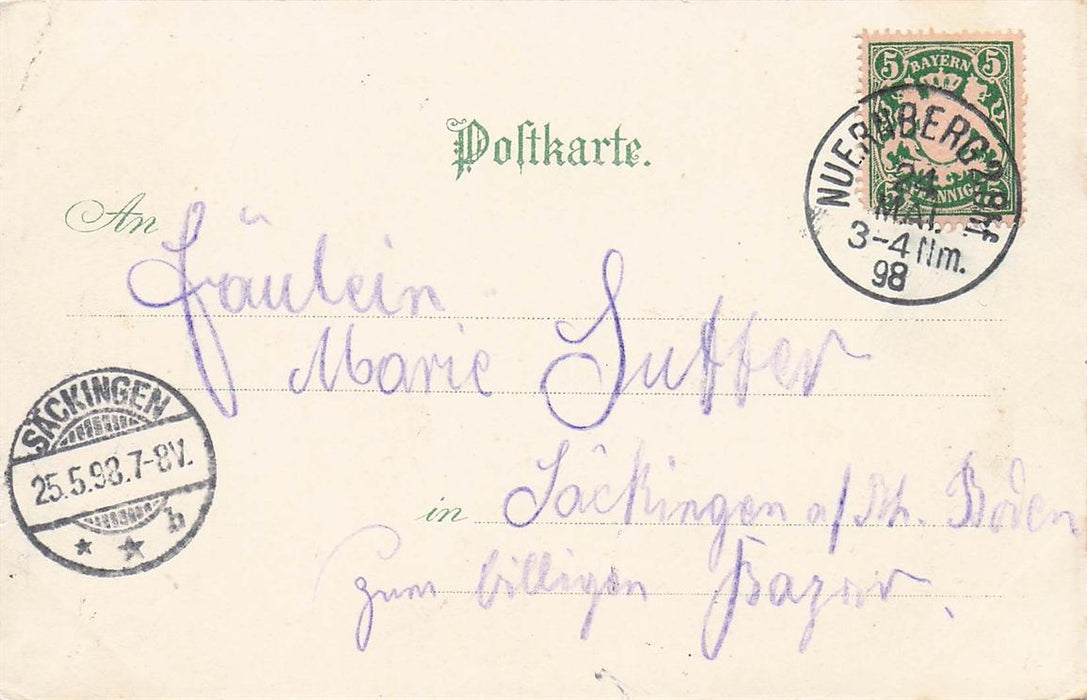 5 BAYERN 5
PFENNIG
NUERNBERG 2.Bhf.
24
MAI.
3-4 Nm.
98
Postkarte.
An
Fräulein
Marie Sutter
SÄCKINGEN
25.5.98.7-8V.
b
in Säckingen a/Rh. Baden
zum billigen Bazar.